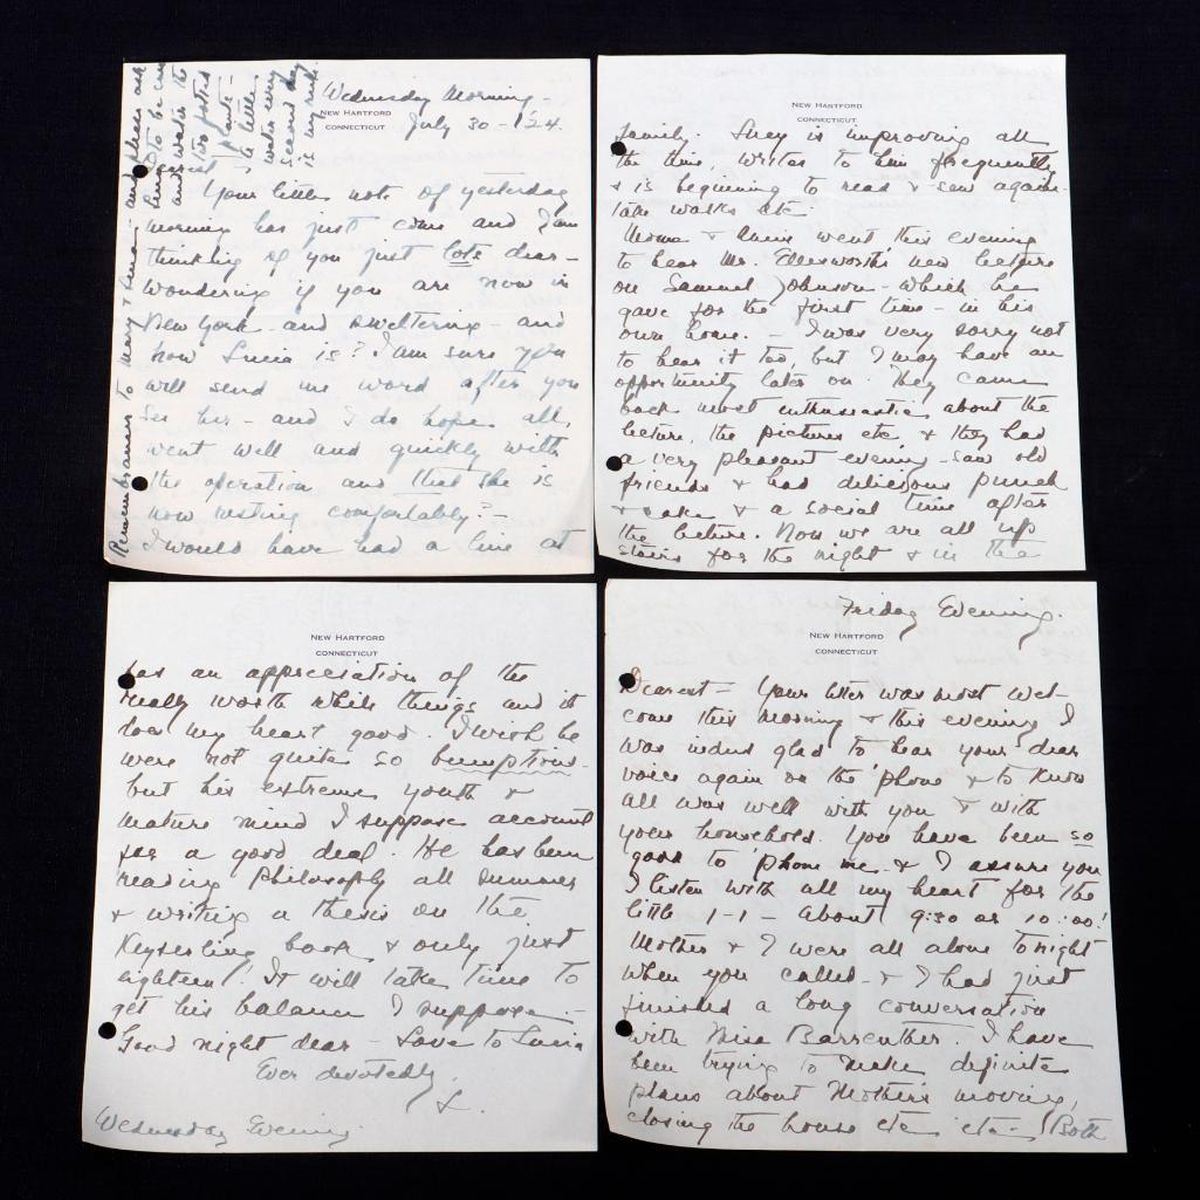 Wednesday Morning -
NEW HARTFORD
CONNECTICUT
July 30 - 1924.
Remembrances to Mary & - and please ask
to be
and water the
two potted
plants -
a little
water every
second day
is my rule.
Dearest -
Your little note of yesterday
morning has just come and I am
thinking of you just lots dear -
Wondering if you are now in
New York - and sweltering - and
how Lucia is? I am sure you
will send me word after you
see her - and I do hope all
went well and quickly with
the operation and that she is
now resting comfortably? -
I would have had a line at
NEW HARTFORD
CONNECTICUT
family. Lucy is improving all
the time, writes to him frequently,
& is beginning to read & sew again -
take walks etc.
Mama & Annie went this evening
to hear Mr. Ellesworth's new lecture
on Samuel Johnson - which he
gave for the first time - in his
own home. - I was very sorry not
to hear it too, but I may have an
opportunity later on. They came
back most enthusiastic about the
lecture, the pictures etc. & they had
a very pleasant evening - saw old
friends & had delicious punch
& cake & a social time after
the lecture. Now we are all up
stairs for the night & in the
NEW HARTFORD
CONNECTICUT
has an appreciation of the
really worth while things and it
does my heart good. I wish he
were not quite so bumptious -
but his extreme youth &
mature mind I suppose account
for a good deal. He has been
reading Philosophy all summer
& writing a thesis on the
Keyserling book & only just
eighteen! It will take time to
get his balance I suppose. -
Good night dear - Love to Lucia
Ever devotedly,
L.
Wednesday Evening.
Friday Evening.
NEW HARTFORD
CONNECTICUT
Dearest - Your letter was most wel-
come this morning & this evening I
was indeed glad to hear your dear
voice again on the 'phone & to know
all was well with you & with
your household. You have been so
good to 'phone me & I assure you
I listen with all my heart for the
little 1-1 - about 9:30 or 10:00!
Mother & I were all alone tonight
when you called - & I had just
finished a long conversation
with Miss Barreuther. I have
been trying to make definite
plans about Mother's moving,
closing the house etc - etc - Both